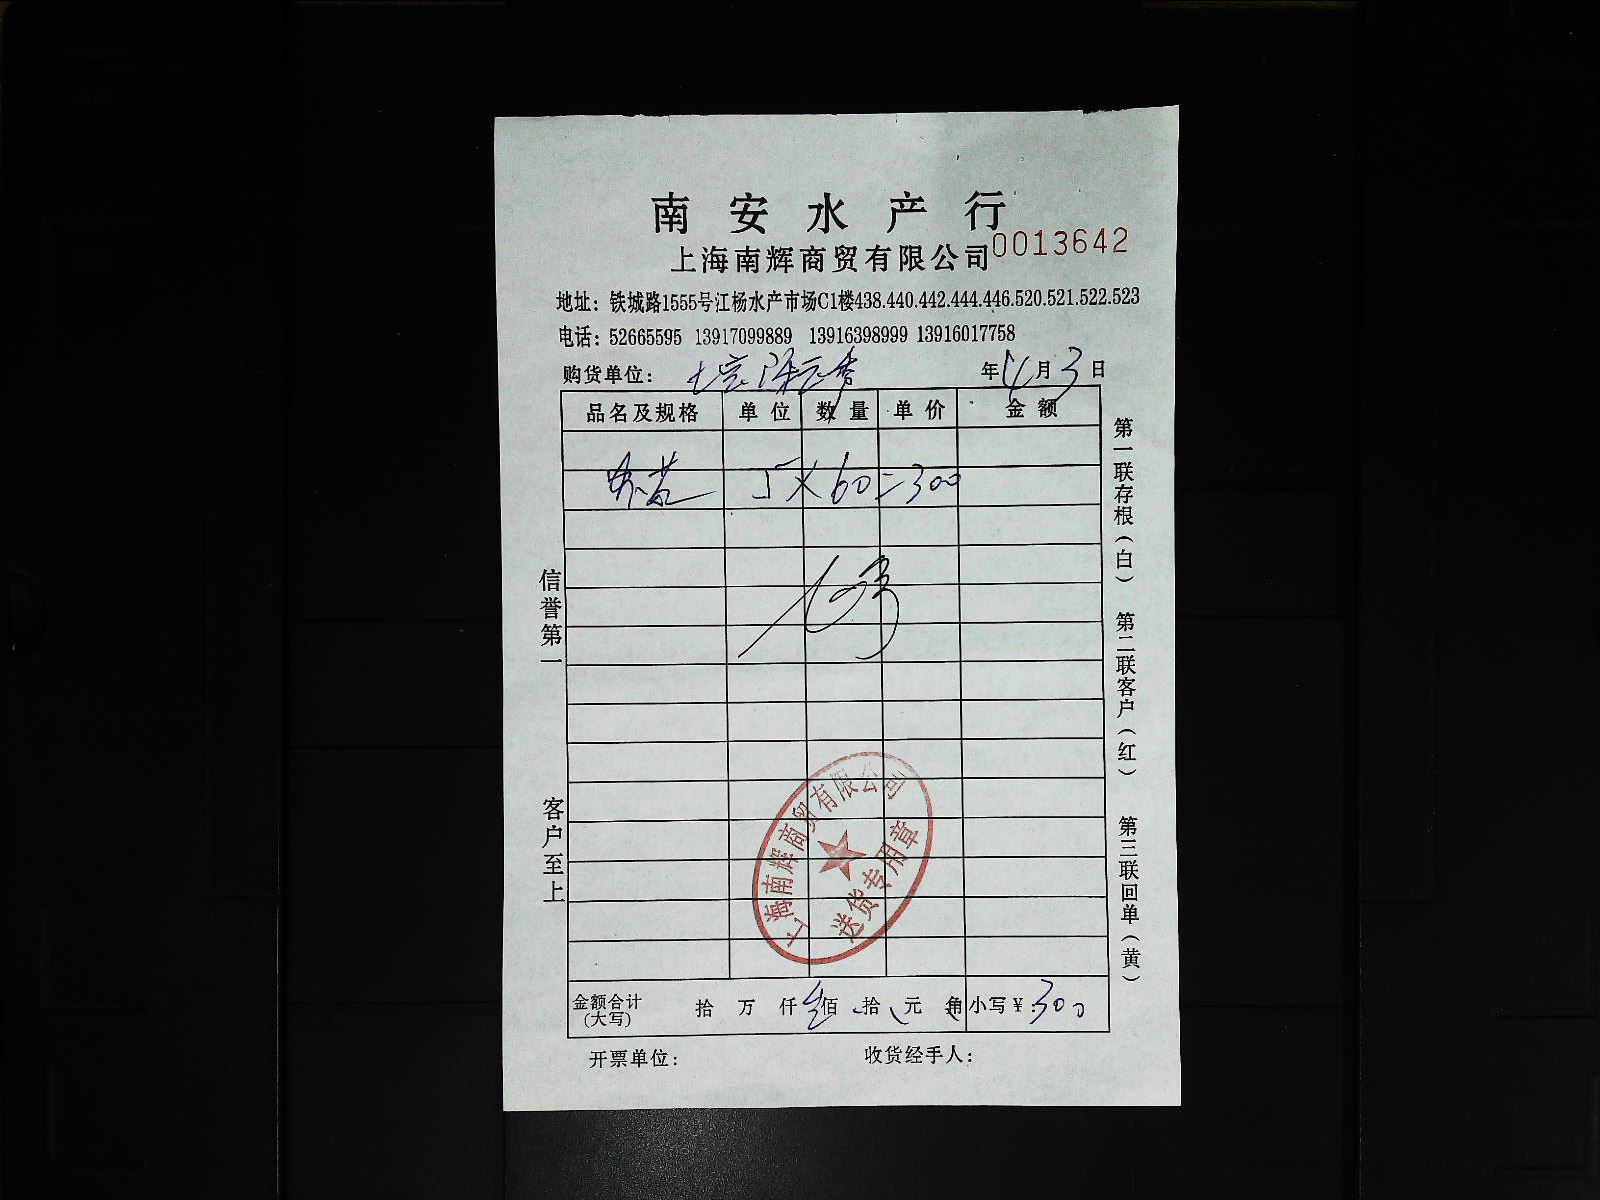 南安水产行
上海南辉商贸有限公司 0013642
地址：铁城路1555号江杨水产市场C1楼438.440.442.444.446.520.521.522.523
电话：52665595 13917099889 13916398999 13916017758
购货单位： 年4月3日
品名及规格 单位 数量 单价 金额
5×60=300
信誉第一
客户至上
第一联存根（白） 第二联客户（红） 第三联回单（黄）
上海南辉商贸有限公司
送货专用章
金额合计（大写） 拾 万 仟 叁佰 拾 元 角 小写￥：300
开票单位： 收货经手人：